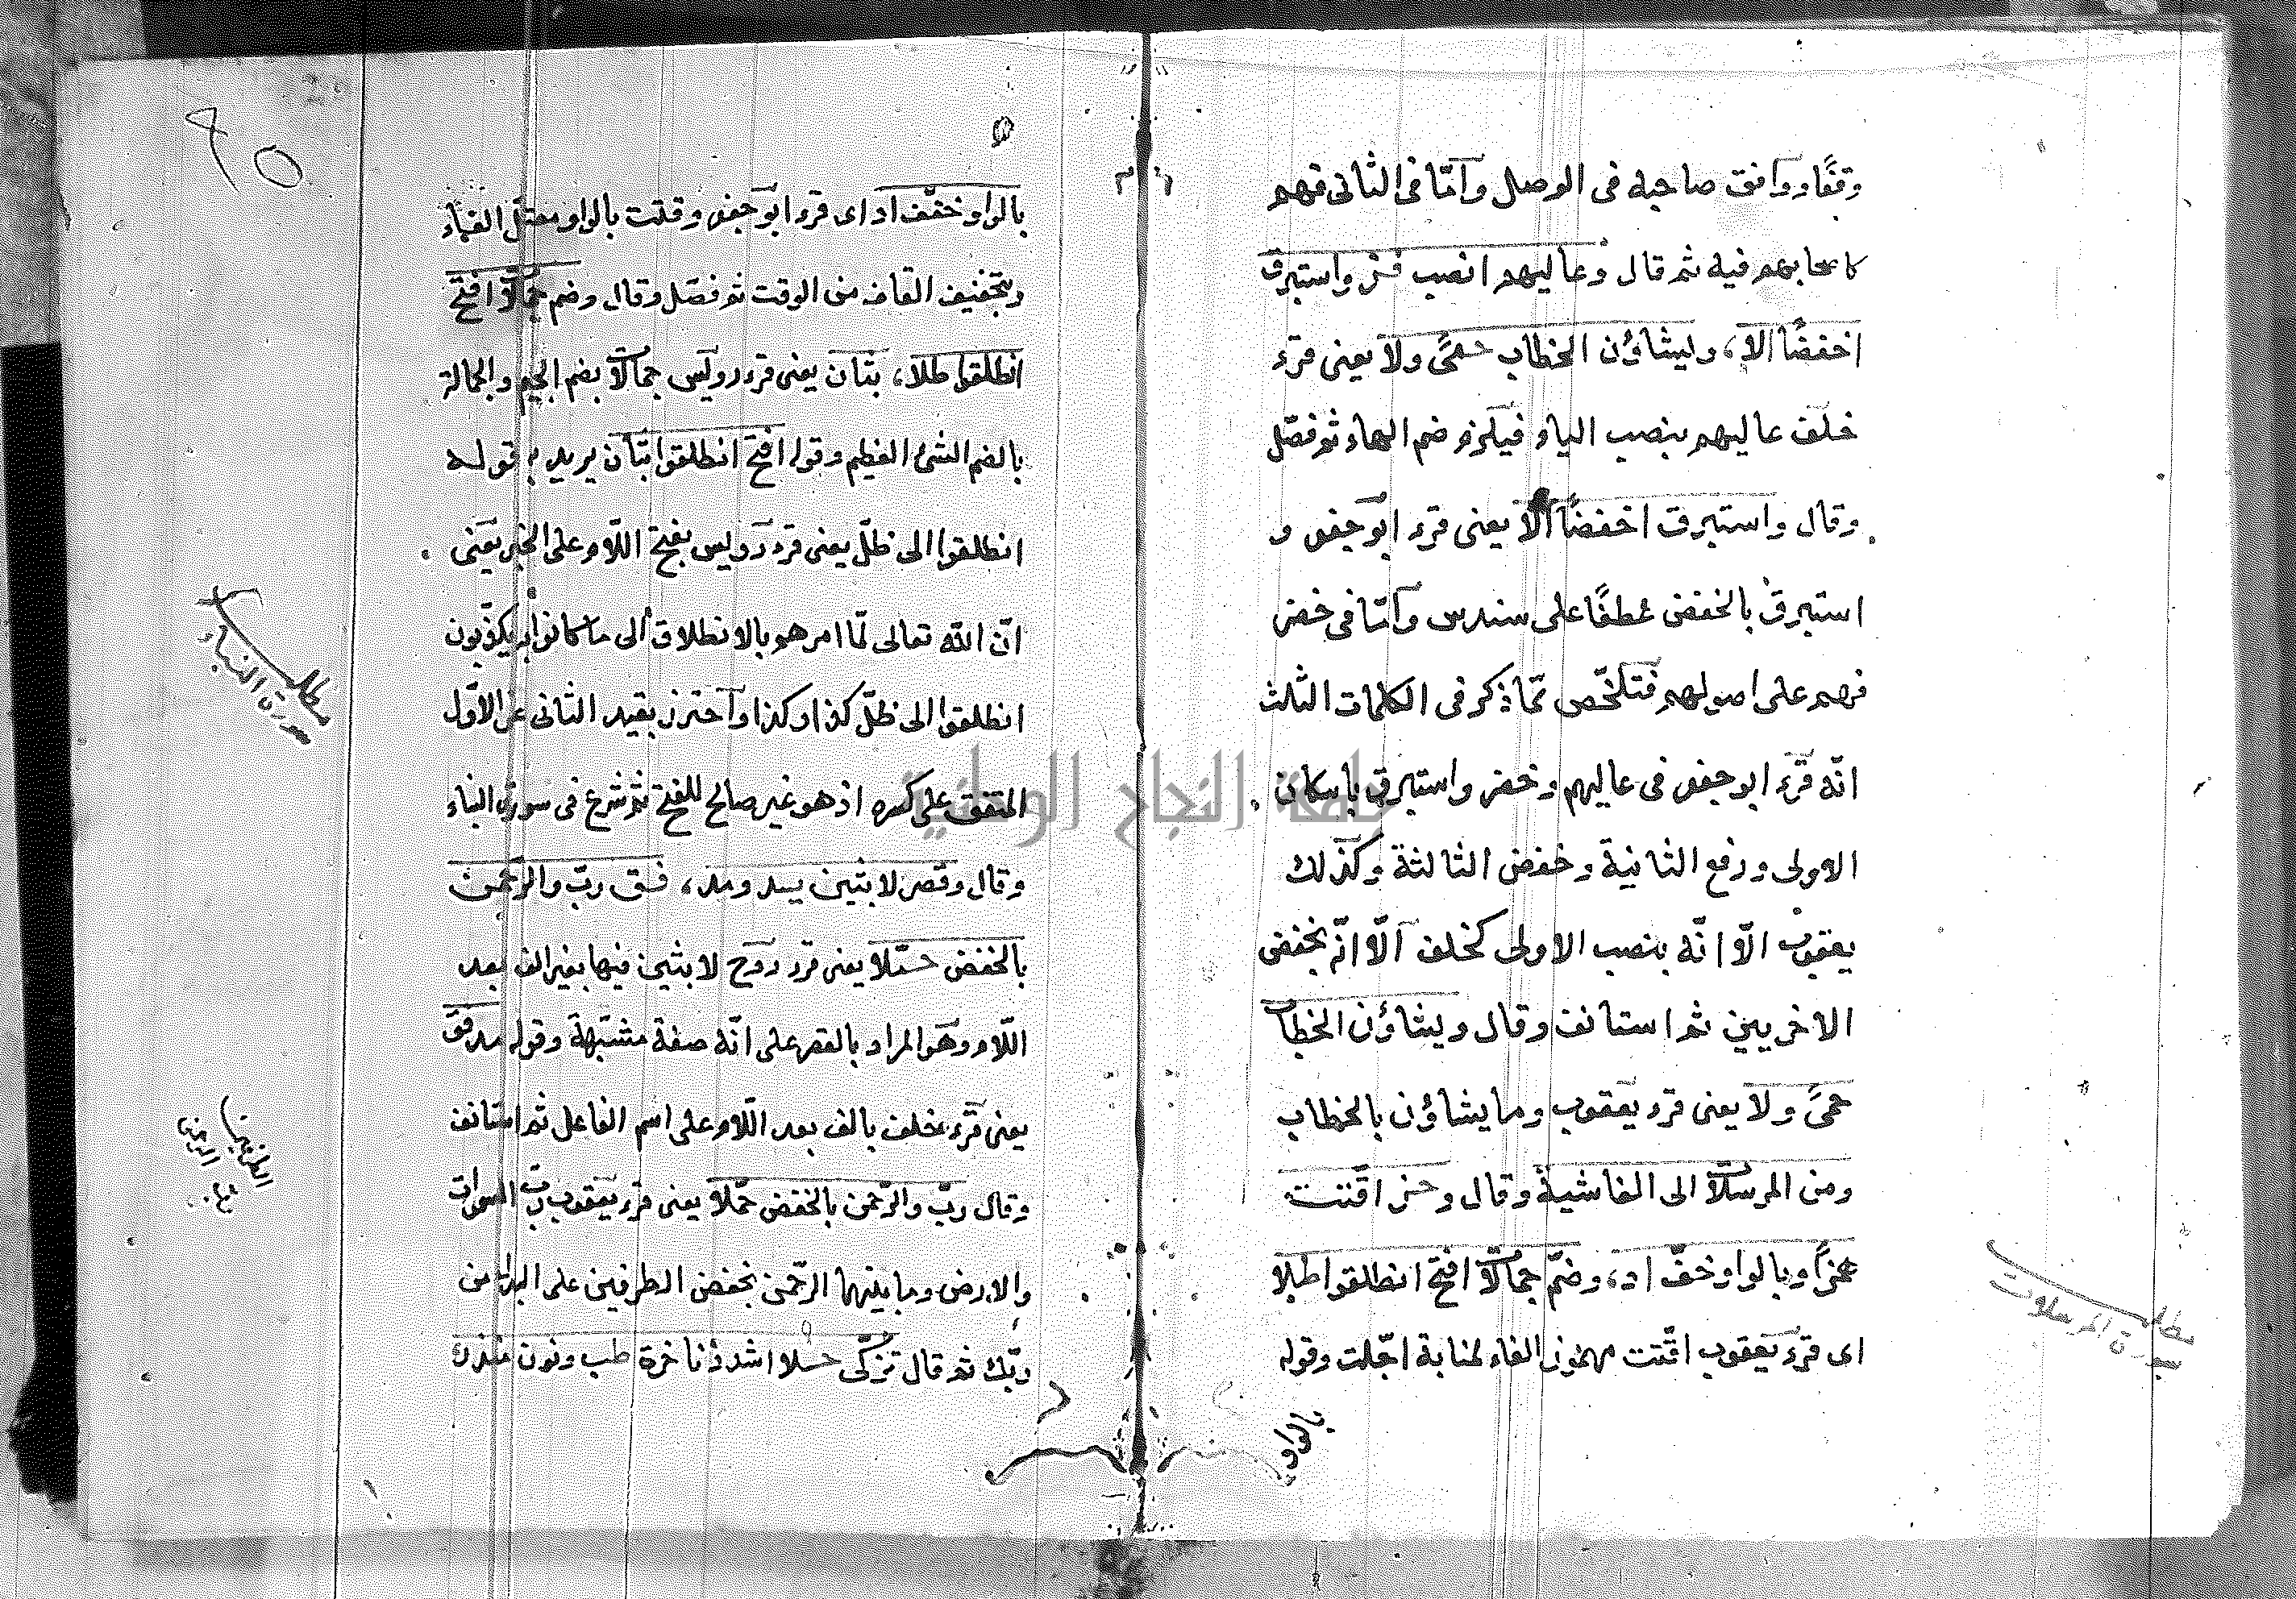 وقفًا ووافق صاحبه فى الوصل وامّا فى الثانى فهم
كاصحابهم فيه ثم قال وعاليهم انصب فـز واستبرق
اخفضًا الا، ويشاؤن الخطاب حمًى ولا يعنى قرء
خلف عاليهم بنصب الياء فيلزم ضم الهاء ثم فصّل
وقال واستبرق اخفضًا الا يعنى قرء ابو جعفر و
استبرق بالخفض عطفًا على سندس وامّا فى خضر
فهم على اصولهم فتلخّص ممّا ذكر فى الكلمات الثلث
انّه قرء ابو جعفر فى عاليهم وخضر واستبرق باسكان
الاولى ورفع الثانية وخفض الثالثة وكذلك
يعقوب الّا انّه بنصب الاولى كخلف الّا انّه بخفض
الاخريين ثم استانف وقال ويشاؤن الخطاب
حمًى ولا يعنى قرء يعقوب وما يشاؤن بالخطاب
ومن المرسلات الى الغاشية وقال وحـز اقتت
همزًا وبالواو خفّ اد، وضمّ جمالات افتح انطلقوا طلا
اى قرء يعقوب اقّتت مهموز الفاء لمنابة اجّلت وقوله
بالواو
مطلب
سورة المرسلات
٤٥
بالواو خفّف اد اى قرء ابو جعفر وقتت بالواو معتل الفاء
وبتخفيف القاف من الوقت ثم فصّل وقال وضم جمالات افتح
انطلقوا طلا، بثان يعنى قرء رويس جمالات بضم الجيم والجمالة
بالضم الشئ العظيم وقوله افتح انطلقوا بثان يريد به قوله
انطلقوا الى ظلّ يعنى قرء رويس بفتح اللام على الخبر يعنى
انّ الله تعالى لمّا امرهم بالانطلاق الى ما كانوا به يكذّبون
انطلقوا الى ظلّ كذا وكذا واحترز بقيد الثانى عن الاوّل
المتفق على كسره اذ هو غير صالح للفتح ثم شرع فى سورة النباء
وقال وقصر لابثين يـد ومد، فـق ربّ والرّحمن
بالخفض حـمّلا يعنى قرء روح لابثين فيها بغير الف بعد
اللام وهو المراد بالقصر على انّه صفة مشبّهة وقوله مد فق
يعنى قرء خلف بالف بعد اللام على اسم الفاعل ثم استانف
وقال ربّ والرّحمن بالخفض حمّلا يعنى قرء يعقوب ربّ السموات
والارض وما بينهما الرّحمن بخفض الطرفين على البدل من
ربّك ثم قال تزكّى حـلا اشدد ناخرة طب ونون منذر
مطلب
سورة النباء
الطرفين
الرحمن